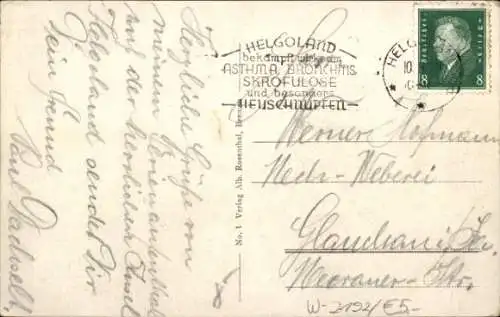 Herzliche Grüße von
meinem Ferienaufenthalt
auf der herrlichen Insel
Helgoland sendet Dir
Dein Freund
Paul
HELGOLAND
bekämpft wirksam
ASTHMA BRONCHITIS
SKROFULOSE
und besonders
HEUSCHNUPFEN
HELG
10.
Deutsches Reich
8 8
No. 1 Verlag Alb. Rosenthal, Bremen
S. H.
Werner Hofmann
Weberei
Glauchau i. Sa.
Meeraner-Str.
W-2192/E5,-